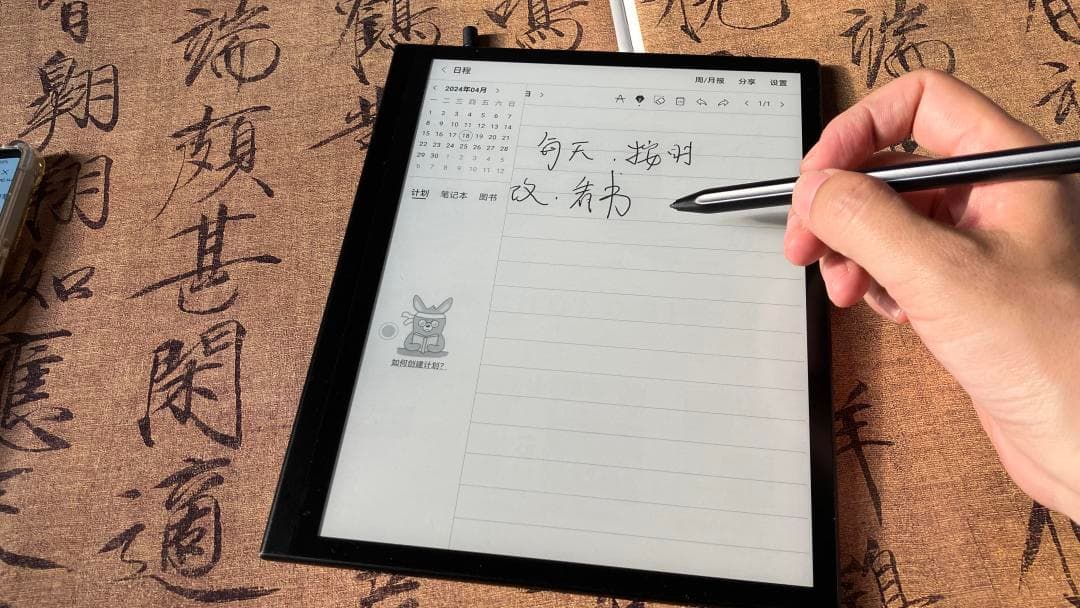 日程
周/月报 分享 设置
2024年04月
日
1/1
一 二 三 四 五 六 日
1 2 3 4 5 6 7
8 9 10 11 12 13 14
15 16 17 18 19 20 21
22 23 24 25 26 27 28
29 30 1 2 3 4 5
6 7 8 9 10 11 12
计划 笔记本 图书
每天.按时
改.看书
如何创建计划?
端
頗
甚
閑
適
翺
翔
如
應
鶴
鳴
端